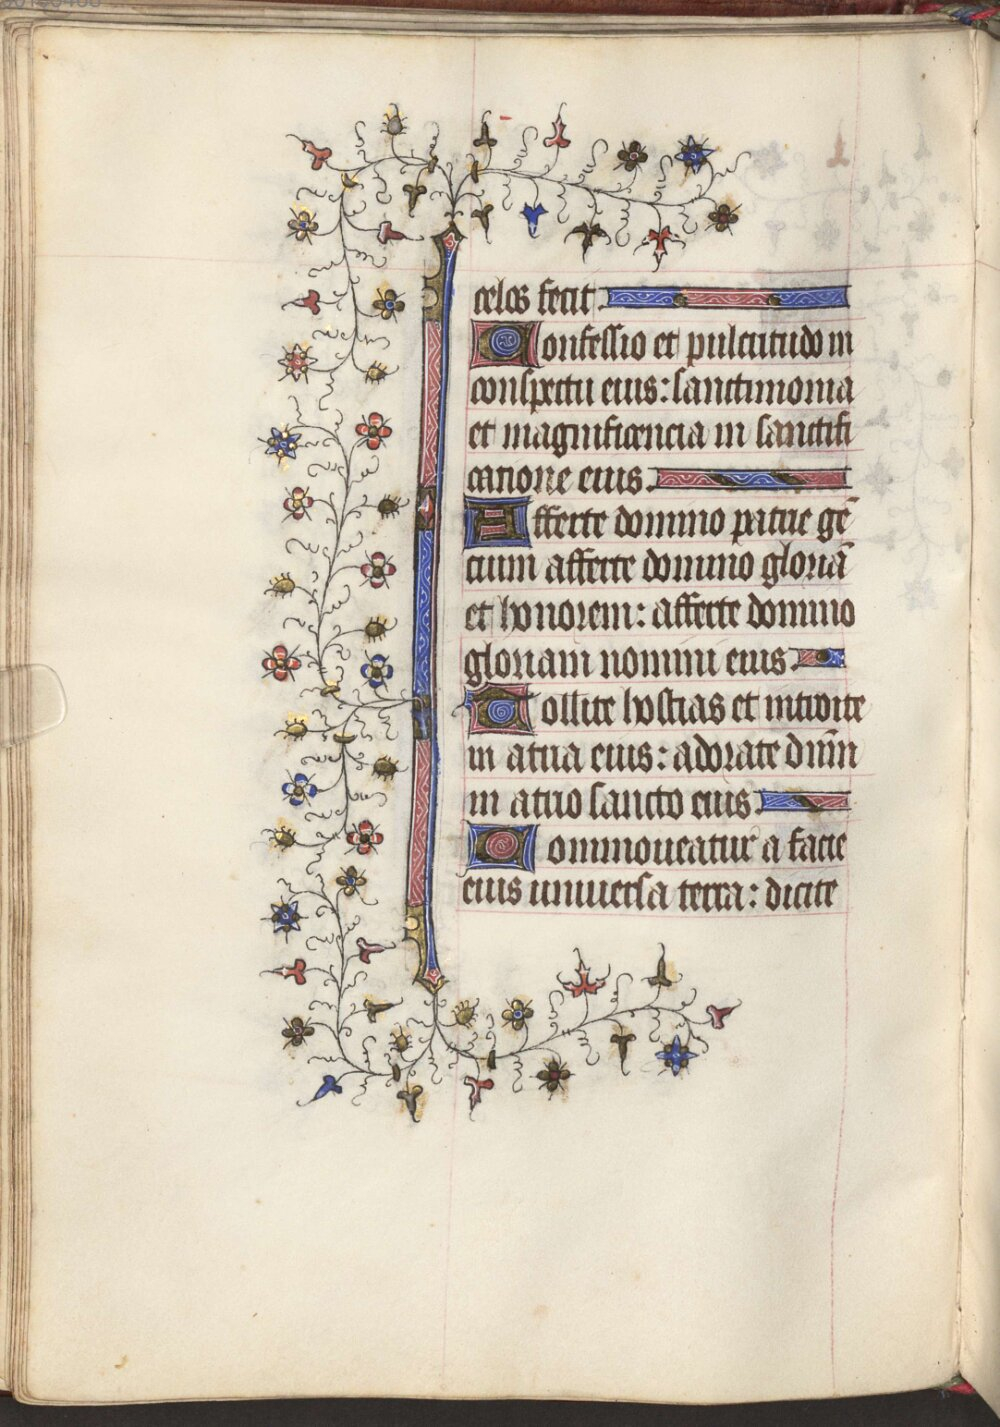 celos fecit.
Confessio et pulcritudo in
conspectu eius: sanctimonia
et magnificencia in sanctifi
catione eius.
Afferte domino patrie gē
tium afferte domino gloriā
et honorem: afferte domino
gloriam nomini eius.
Tollite hostias et introite
in atria eius: adorate dnm̄
in atrio sancto eius.
Commoueatur a facie
eius uniuersa terra: dicite